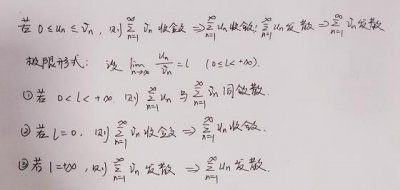 若 0≤uₙ≤vₙ, 则 ∑_{n=1}^{∞} vₙ 收敛 ⇒ ∑_{n=1}^{∞} uₙ 收敛; ∑_{n=1}^{∞} uₙ 发散 ⇒ ∑_{n=1}^{∞} vₙ 发散
极限形式: 设 lim_{n→∞} uₙ/vₙ = l (0≤l<+∞).
① 若 0<l<+∞, 则 ∑_{n=1}^{∞} uₙ 与 ∑_{n=1}^{∞} vₙ 同敛散.
② 若 l=0, 则 ∑_{n=1}^{∞} vₙ 收敛 ⇒ ∑_{n=1}^{∞} uₙ 收敛.
③ 若 l=+∞, 则 ∑_{n=1}^{∞} vₙ 发散 ⇒ ∑_{n=1}^{∞} uₙ 发散.